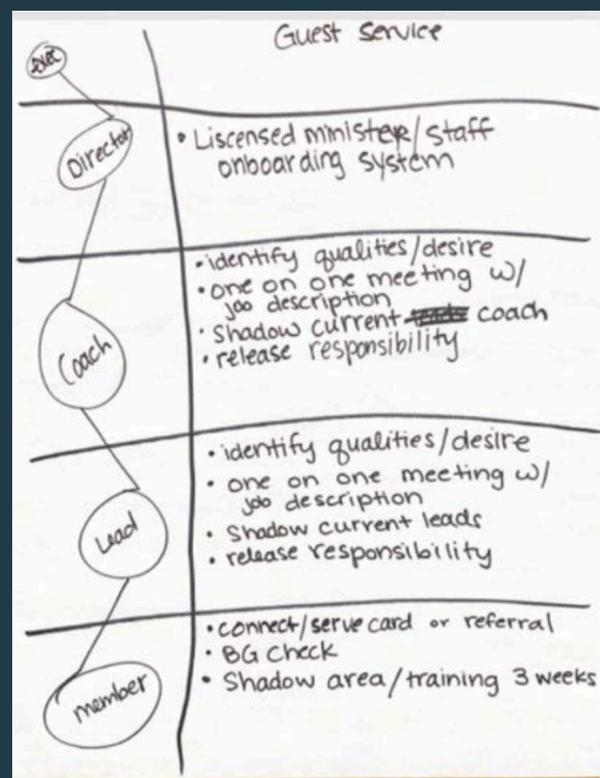 Guest Service
Exec
Director
• Liscensed minister/staff
onboarding system
Coach
• identify qualities/desire
• one on one meeting w/
job description
• Shadow current coach
• release responsibility
Lead
• identify qualities/desire
• one on one meeting w/
job description
• Shadow current leads
• release responsibility
member
• connect/serve card or referral
• BG check
• Shadow area/training 3 weeks